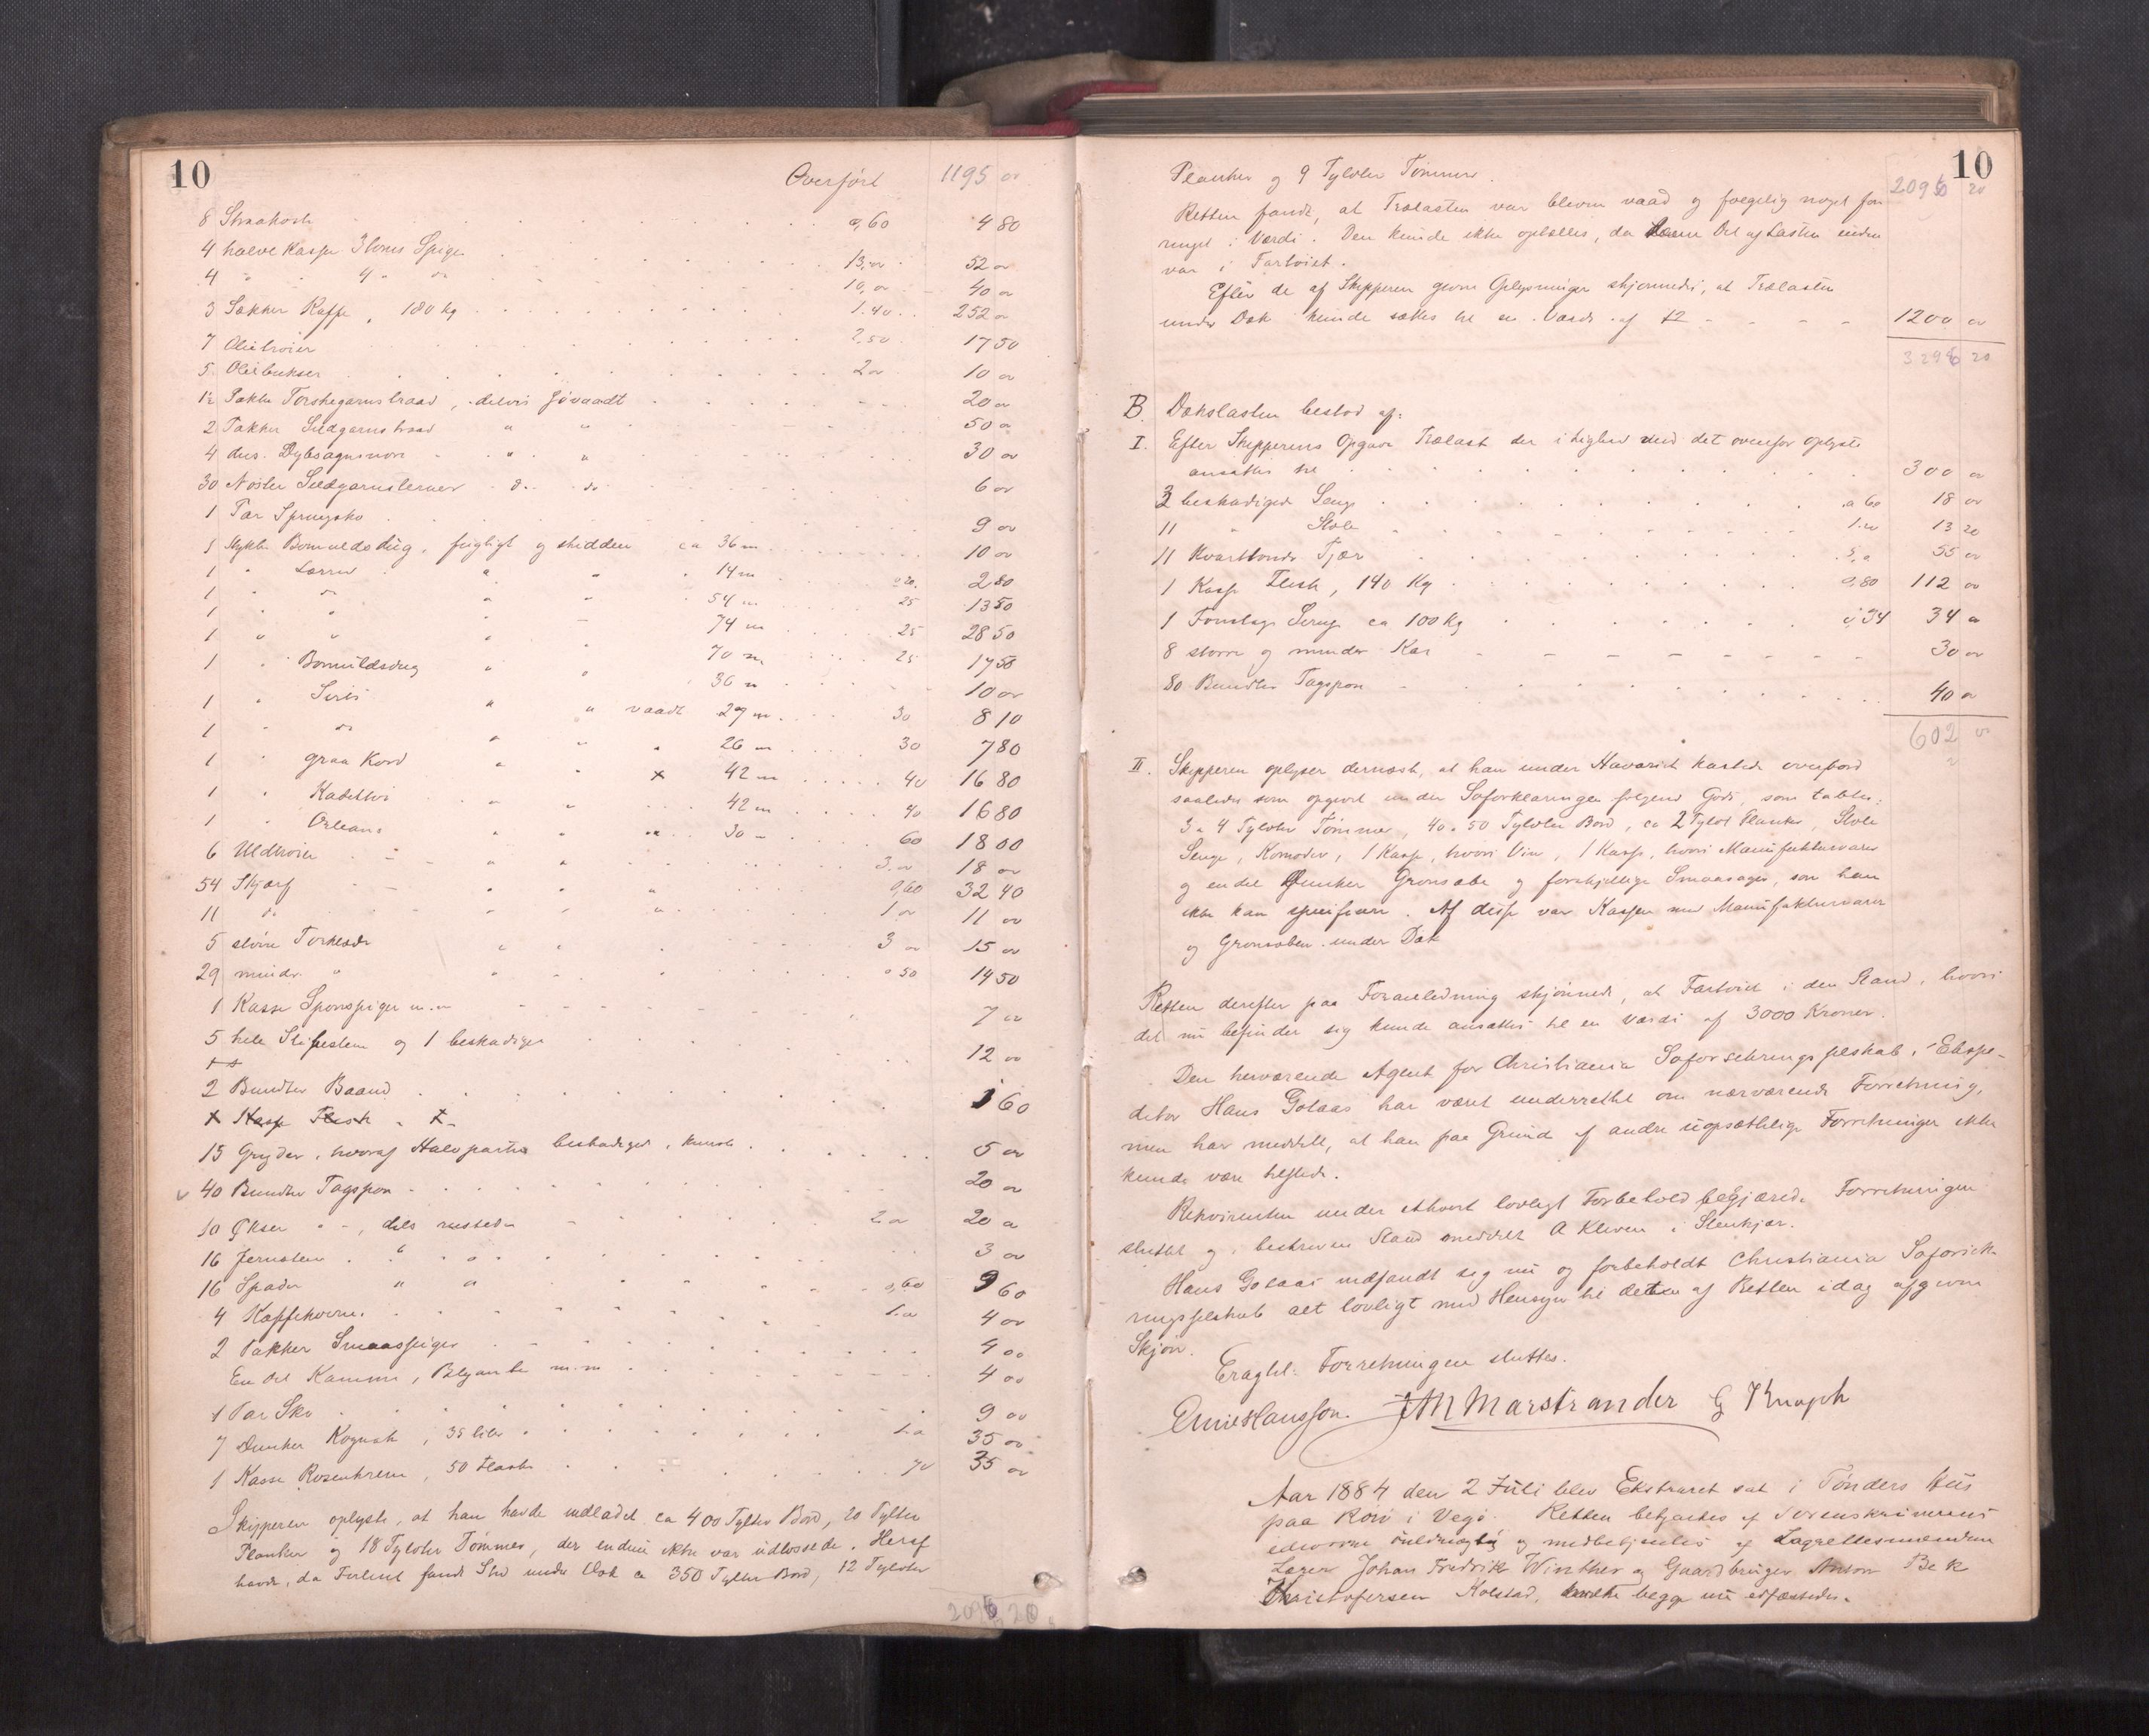 10
Overført 1195 00
8 Straakost 0,60 4 80
4 halve Kasser 3 Toms Spiger 13,00 52 00
4 " 4 " do 10,00 40 00
3 Sækker Kaffe, 180 Kg 1.40 252 00
7 Olietrøier 2,50 17 50
5 Oliebukser 2 00 10 00
1½ Pakke Torskegarnstraad, delvis søvaadt 20 00
2 Pakker Sildgarnstraad " " 50 00
4 dus. Dybsagnsnøre " " 30 00
30 Nøster Sildgarnsterner d. do 6 00
1 Par Springsko 9 00
1 Stykke Bomuldsdug, fugtigt og skidden ca 36 m 10 00
1 " Lærred " " 14 m 0 20 2 80
1 " do " " 54 m 25 13 50
1 " " " 74 m 25 28 50
1 " " " " 70 m 25 17 50
1 " Bomuldsdug " " 36 m 10 00
1 " Sirts " " vaadt 27 m 30 8 10
1 " do " " " 26 m 30 7 80
1 " graa Kord " " x 42 m 40 16 80
1 " " " 42 m 40 16 80
1 " Orleans " " " 30 " 60 18 00
6 Uldtrøier " " 3.00 18 00
54 Skjærf " " " 0,60 32 40
11 do " " " 1 00 11 00
5 større Tørklæder " " 3 00 15 00
29 mindre " " " 0 50 14 50
1 Kasse Sponspiger m.m 7 00
5 hele Slibestene og 1 beskadiget 12 00
2 Bundter Baand 1 60
+ Kasse Flesk
15 Gryder, hvoraf Halvparten beskadiget, kuns 5 00
40 Bundter Tagspon 20 00
10 Økser " -, dels rustede 2 00 20 00
16 Jernsten " " 3 00
16 Spader " " 0,60 9 60
4 Kaffekværne 1.00 4 00
2 Pakker Smaaspiger 4 00
En Del Kamme, Blyanter m.m 4 00
1 Par Sko 9 00
7 Dunker Kognak, 35 liter 1.00 35 00
1 Kasse Rosenkrem, 50 flasker 70 35 00
Skipperen oplyste, at han havde indladet ca 400 Tylter Bord, 20 Tylter
Planker og 18 Tylvter Tømmer, der endnu ikke var udlossede. Heraf
havde, da Forliset fandt Sted under Dæk ca 350 Tylter Bord, 12 Tylvter
2096 20
10
Planker og 9 Tylvter Tømmer.
2096 20
Retten fandt, at Trælasten var bleven vaad og følgelig noget for
ringet i Værdi. Den kunde ikke optælles, da denne Del af Lasten endnu
var i Fartøiet.
Efter de af Skipperen givne Oplysninger skjønnedes, at Trælasten
under Dæk kunde sættes til en Værdi af 1200 00
3296 20
B. Dækslasten bestod af:
I. Efter Skipperens Opgave Trælast der i lighed med det ovenfor oplyste
ansættes til 300 00
3 beskadigede Senge a 60 18 00
11 " Stole 1.20 13 20
11 Kvarttønder Tjære 5,00 55 00
1 Kasse Flesk, 140 Kg 0,80 112 00
1 Fonstage Sirup ca 100 Kg 0,34 34 00
8 større og mindre Kar 30 00
80 Bundter Tagspon 40 00
602 00
II. Skipperen oplyser dernæst, at han under Havariet kastede overbord
saaledes som opgivet under Søforklaringen følgende Gods, som tabtes:
3 a 4 Tylvter Tømmer, 40 a 50 Tylvter Bord, ca 2 Tylvt Planker, Stole
Senge, Komoder, 1 Kasse, hvori Vin, 1 Kasse, hvori Manufakturvarer
og endel Dunker Grønsæbe og forskjellige Smaasager, som han
ikke kan spesifisere. Af disse var Kassen med Manufakturvarer
og Grønsæben under Dæk
Retten derefter paa Foranledning skjønnede, at Fartøiet i den Stand, hvori
det nu befinder sig kunde ansættes til en Værdi af 3000 Kroner.
Den herværende Agent for Christiania Søforsikringsselskab, Ekspe-
ditør Hans Gotaas har været underrettet om nærværende Forretning,
men har meddelt, at han paa Grund af andre uopsættelige Forretninger ikke
kunde være tilstede.
Rekvirenten under ethvert lovligt Forbehold begjærede Forretningen
sluttet og i beskreven Stand meddelt A Kleven i Stenkjær.
Hans Gotaas indfandt sig nu og forbeholdt Christiania Søforsik-
ringsselskab alt lovligt med Hensyn til dette af Retten idag afgivne
Skjøn.
Eragtet: Forretningen sluttes.
JM Marstrander G Knoph
Aar 1884 den 2 Juli blev Ekstraret sat i Tønders Hus
paa Rørø i Vegø. Retten betjentes af Sorenskriverens
edsvorne fuldmægtig og medbetjentes af Lagrettesmændene
Lægen Johan Fredrik Winther og Gaardbruger Anton Bek
Kristofersen Kolstad, hvilke begge nu edfæstedes.